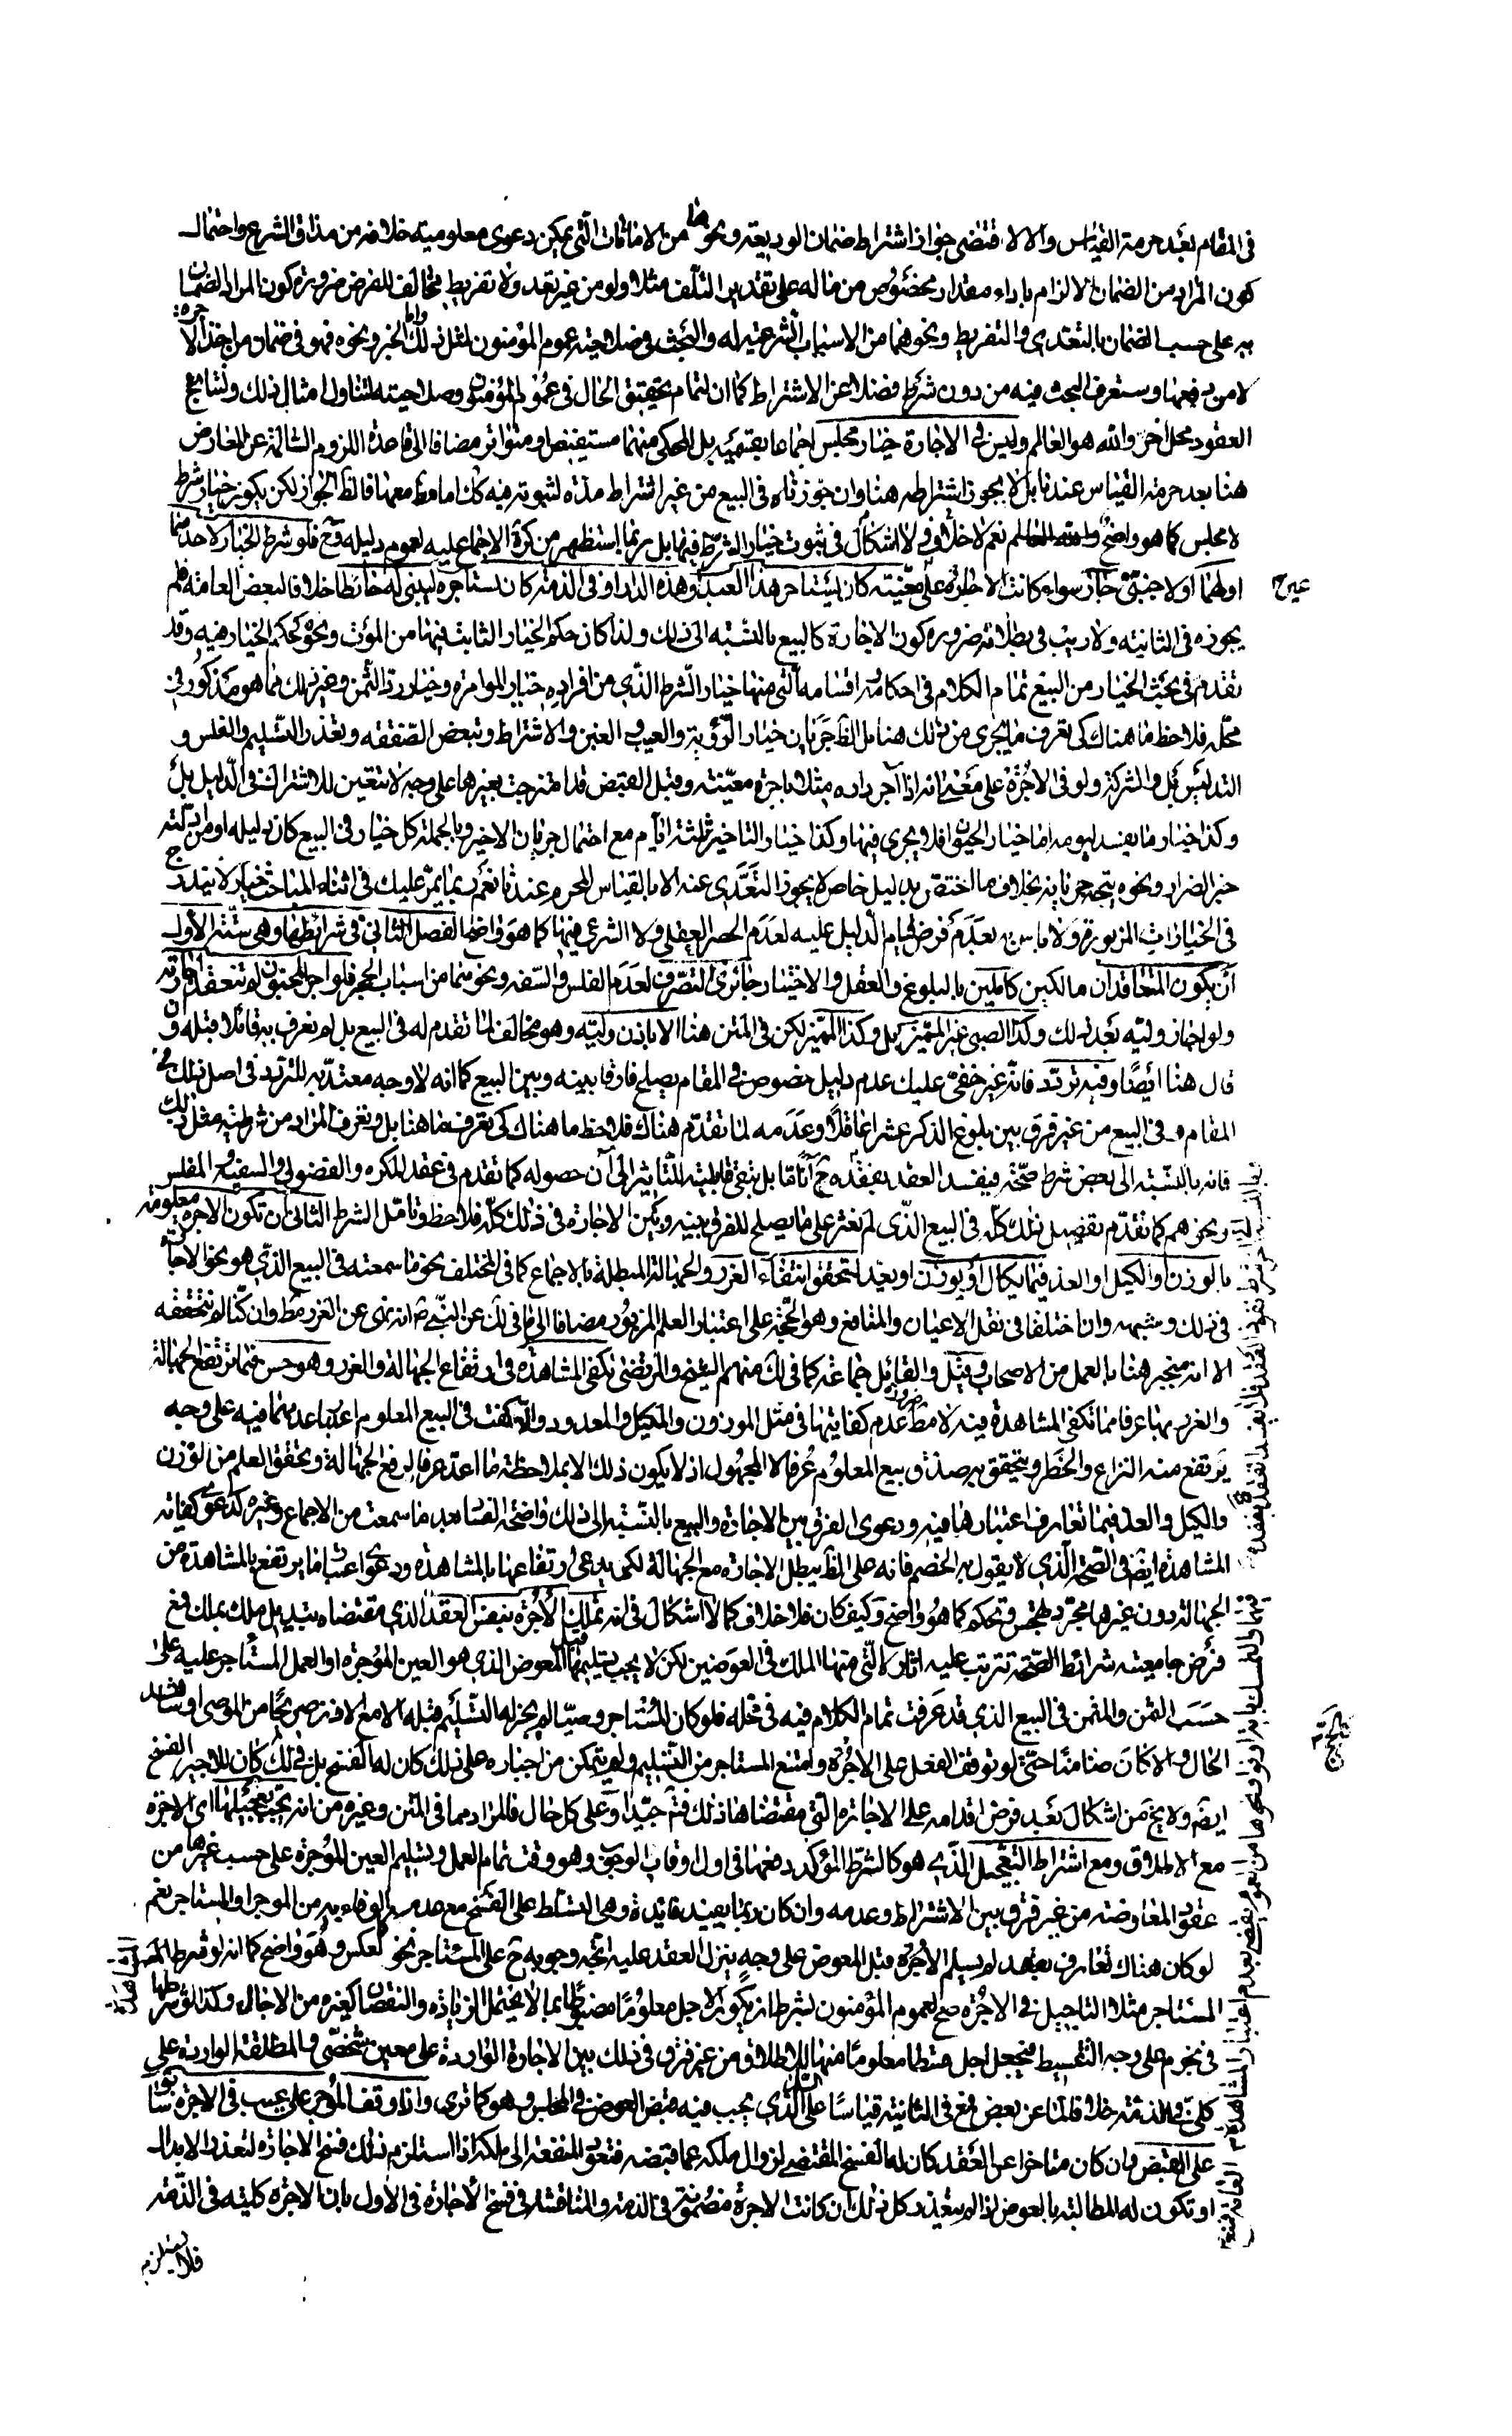 فى المقام بعد حرمة القياس والا لاقتضى جواز اشتراط ضمان الوديعة ونحوها من الامانات التى يمكن دعوى معلومية خلافه من مذاق الشرع واحتمال
كون المراد من الضمان الالزام باداء مقدار مخصوص من ماله على تقدير التلف مثلا ولو من غير تعد ولا تفريط مخالف للفرض ضرورة كون المراد الضمان
به على حسب الضمان بالتعدى والتفريط ونحوهما من الاسباب الشرعية له والبحث فى صلاحية عموم المؤمنون لمثل ذلك واما الخبر ونحوه فهو فى ضمان من اخذ الاجرة
لا من يدفعها وستعرف البحث فيه من دون شرط فضلا عن الاشتراط كما ان لتمام تحقيق الحال فى عموم المؤمنون وصلاحيته لتناول امثال ذلك ولنتايج
العقود محل اخر والله هو العالم وليس فى الاجارة خيار مجلس اجماعا بقسميه بل المحكى منهما مستفيض او متواتر مضافا الى قاعدة اللزوم السالمة عن المعارض
هنا بعد حرمة القياس عندنا بل لا يجوز اشتراطه هنا وان جوزناه فى البيع من غير اشتراط مدة لثبوته فيه كك اما مع معها فالظ الجواز لكن يكون خيار شرط
لا مجلس كما هو واضح نعم لا خلاف ولا اشكال فى ثبوت خيار الشرط فيها بل ربما استظهر من كرة الاجماع عليه لعموم دليله وح فلو شرط الخيار لاحدهما
او لهما او لاجنبى جاز سواء كانت الاجارة على معينة كان يستاجر هذا العبد وهذه الدار او فى الذمة كان يستاجره ليبنى له حائطا خلافا لبعض العامة فلم
يجوزه فى الثانية ولا ريب فى بطلانه ضرورة كون الاجارة كالبيع بالنسبة الى ذلك ولذا كان حكم الخيار الثابت فيها من المؤن ونحوه كحكم الخيار فيه وقد
تقدم فى بحث الخيار من البيع تمام الكلام فى احكامه واقسامه التى منها خيار الشرط الذى من افراده خيار الموامرة وخيار رد الثمن وغير ذلك مما هو مذكور فى
محله فلاحظ ما هناك كى تعرف ما يجرى من ذلك هنا بل الظ جريان خيار الرؤية والعيب والغبن والاشتراط وتبعض الصفقة وتعذر التسليم والفلس و
التدليس بل والشركة ولو فى الاجرة على معنى انه اذا آجر داره مثلا باجرة معينة وقبل القبض قد امتزجت بغيرها على وجه لا تتعين للاشتراك فى الدليل بل
وكذا خيار ما يفسد ليومه اما خيار الحيوان فلا يجرى فيها وكذا خيار التاخير ثلثة ايام مع احتمال جريان الاخير وبالجملة كل خيار فى البيع كان دليله او من ادلته
خبر الضرار ونحوه يتجه جريانه بخلاف ما اختص بدليل خاص لا يجوز التعدى عنه الا بالقياس المحرم عندنا نعم ربما يمر عليك فى اثناء المباحث خيار لا يندرج
فى الخيارات المزبورة ولا باس به بعد فرض قيام الدليل عليه لعدم الحصر العقلى ولا الشرعى فيها كما هو واضح الفصل الثانى فى شرائطها وهى ستة الاول
أن يكون المتعاقدان مالكين كاملين بالبلوغ والعقل والاختيار جائزى التصرف لعدم الفلس والسفه ونحوهما من اسباب الحجر فلو اجر المجنون لم تنعقد اجارته
ولو اجاز وليه بعد ذلك وكذا الصبى غير المميز بل وكذا المميز لكن فى المتن هنا الا باذن وليه وهو مخالف لما تقدم له فى البيع بل لم نعرف به قائلا قبله وان
قال هنا ايضا وفيه تردد فانه غير خفى عليك عدم دليل مخصوص فى المقام يصلح فارقا بينه وبين البيع كما انه لا وجه معتد به للتردد فى اصل ذلك فى
المقام وفى البيع من غير فرق بين بلوغ الذكر عشرا عاقلا وعدمه لما تقدم هناك فلاحظ ما هناك كى تعرف ما هنا بل وتعرف المراد من شرطية مثل ذلك
فانه بالنسبة الى بعض شرط صحة فيفسد العقد بفقده ح اما بل تبقى قابلية للتاثير الى آن حصوله كما تقدم فى عقد المكره والفضولى والسفيه والمفلس
ونحوهم كما تقدم تفصيل ذلك كله فى البيع الذى لم نعثر على ما يصلح للفرق بينه وبين الاجارة فى ذلك كله فلاحظ وتامل الشرط الثانى أن تكون الاجرة معلومة
بالوزن أو الكيل او العد فيما يكال أو يوزن او يعد لتحقق انتفاء الغرر والجهالة المبطلة بالاجماع كما فى المختلف نحو ما سمعته فى البيع الذى هو نحو الاجارة
فى ذلك وشبهه وان اختلفا فى نقل الاعيان والمنافع وهو الحجة على اعتبار العلم المزبور مضافا الى ما فى لك عن النبى ص انه نهى عن الغرر مط وان كنا لم نتحققه
الا انه منجبر هنا بالعمل من الاصحاب وقيل والقائل جماعة كما فى لك منهم الشيخ والمرتضى تكفى المشاهدة فى ارتفاع الجهالة والغرر وهو حسن فيما ترتفع الجهالة
والغرر بها عرفا مما تكفى المشاهدة فيه لا مط ضرورة عدم كفايتها فى مثل الموزون والمكيل والمعدود والا لكفت فى البيع المعلوم اعتبار عدمها فيه على وجه
يرتفع منه النزاع والخطر ويتحقق به صدق بيع المعلوم عرفا لا المجهول اذ لا يكون ذلك الا بملاحظة ما اعتد عرفا لرفع الجهالة وتحقق العلم من الوزن
والكيل والعد فيما تعارف اعتبارها فيه ودعوى الفرق بين الاجارة والبيع بالنسبة الى ذلك واضحة الفساد بعد ما سمعت من الاجماع وغيره كدعوى كفاية
المشاهدة ايض فى الصحة الذى لا يقول به الخصم فانه على الظ يبطل الاجارة مع الجهالة لكى يدعى ارتفاعها بالمشاهدة ودعوى اعتبار ما يرتفع بالمشاهدة من
الجهالة دون غيرها مجرد تهجس وتحكم كما هو واضح وكيف كان فلا خلاف كما لا اشكال فى انه تملك الأجرة بنفس العقد الذى مقتضاه تبديل ملك بملك فمع
فرض جامعيته شرائط الصحة تترتب عليه اثاره التى منها الملك فى العوضين لكن لا يجب تسليمها قبل المعوض الذى هو العين المؤجرة او العمل المستأجر عليه على
حسب الثمن والمثمن فى البيع الذى قد عرفت تمام الكلام فيه فى محله فلو كان المستاجر وصيا لم يجز له التسليم قبله الا مع الاذن صريحا من الموصى او شاهد
الحال والا كان ضامنا حتى لو توقف الفعل على الاجرة وامتنع المستاجر من التسليم ولم يتمكن من اجباره على ذلك كان له الفسخ بل فى لك كان للاجير الفسخ
ايض ولا يخ من اشكال بعد فرض اقدامه على الاجارة التى مقتضاها ذلك فتم جيدا وعلى كل حال فالمراد مما فى المتن وغيره من انه يجب تعجيلها اى الاجرة
مع الاطلاق ومع اشتراط التعجيل الذى هو كالشرط المؤكد دفعها فى اول اوقات الوجوب وهو وقت تمام العمل وتسليم العين المؤجرة على حسب غيرها من
عقود المعاوضة من غير فرق بين الاشتراط وعدمه وان كان ربما يفيد فائدة وهى التسلط على الفسخ مع عدم الوفاء به من الموجر او المستاجر نعم
لو كان هناك تعارف بعهد لم يسلم الأجرة قبل المعوض على وجه ينزل العقد عليه اتجه وجوبه ح على المستاجر نحو العكس وهو واضح كما انه لو شرط
المستاجر مثلا التاجيل فى الاجرة صح لعموم المؤمنون بشرط ان يكون الاجل معلوما مضبوطا بما لا يحتمل الزيادة والنقصان كغيره من الاجال وكذا لو شرطها
فى نجوم على وجه التقسيط فيجعل اجل قسطا معلوما منها للاطلاق من غير فرق فى ذلك بين الاجارة الواردة على معين شخصى والمطلقة الواردة على
كلى فى الذمة خلافا لما عن بعض فمنع فى الثانية قياسا على السلم الذى يجب فيه قبض العوض فى المجلس وهو كما ترى واذا وقف المؤجر على عيب فى الاجرة سابق
على القبض وان كان متاخرا عن العقد كان له الفسخ المقتضى لزوال ملكه عما قبضه فتعود المنفعة الى ملكه اذا استلزم ذلك فسخ الاجارة لتعذر الابدال
او تكون له المطالبة بالعوض اذا لم يتعذر كل ذلك ان كانت الاجرة مضمونة فى الذمة والمناقشة فى فسخ الأجارة فى الأول بان الاجرة كلية فى الذمة
فلا يستلزم